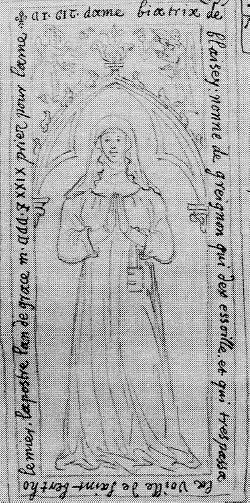 ✠ ci. git. dame biatrix de
blaisey. nonne de greignon qui dex essoille. et qui trespassa
la voille de saint bertho
lemieu. lapostre lan de grace m. ccc. XXXIX priez pour lame